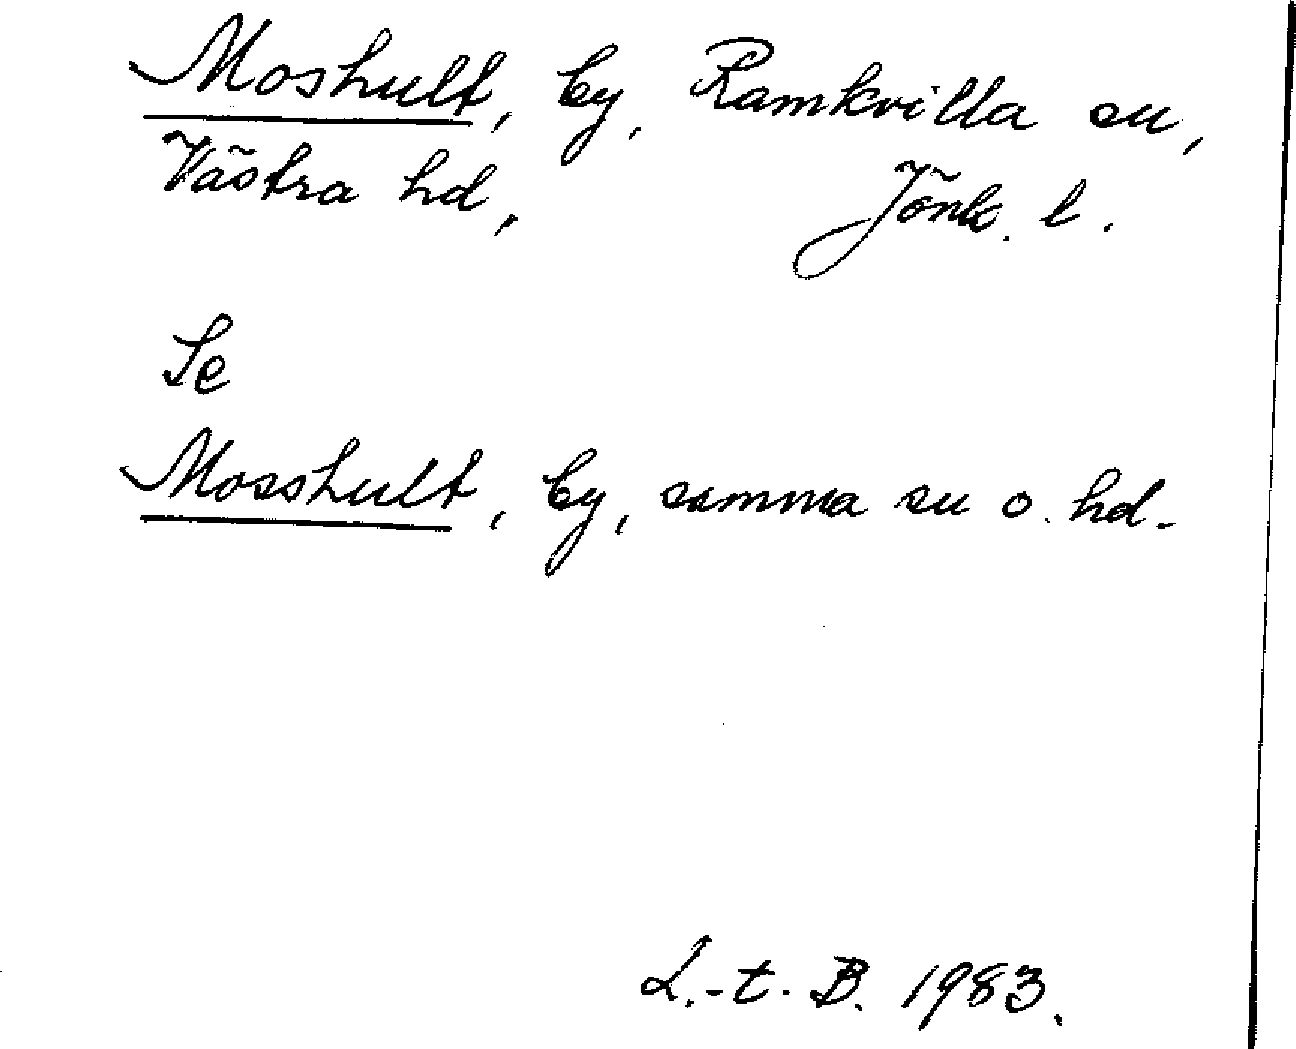 Moshult, by, Ramkvilla sn,
Västra hd, Jönk. l.
Se
Mosshult, by, samma sn o. hd.
L.-t. B. 1983.